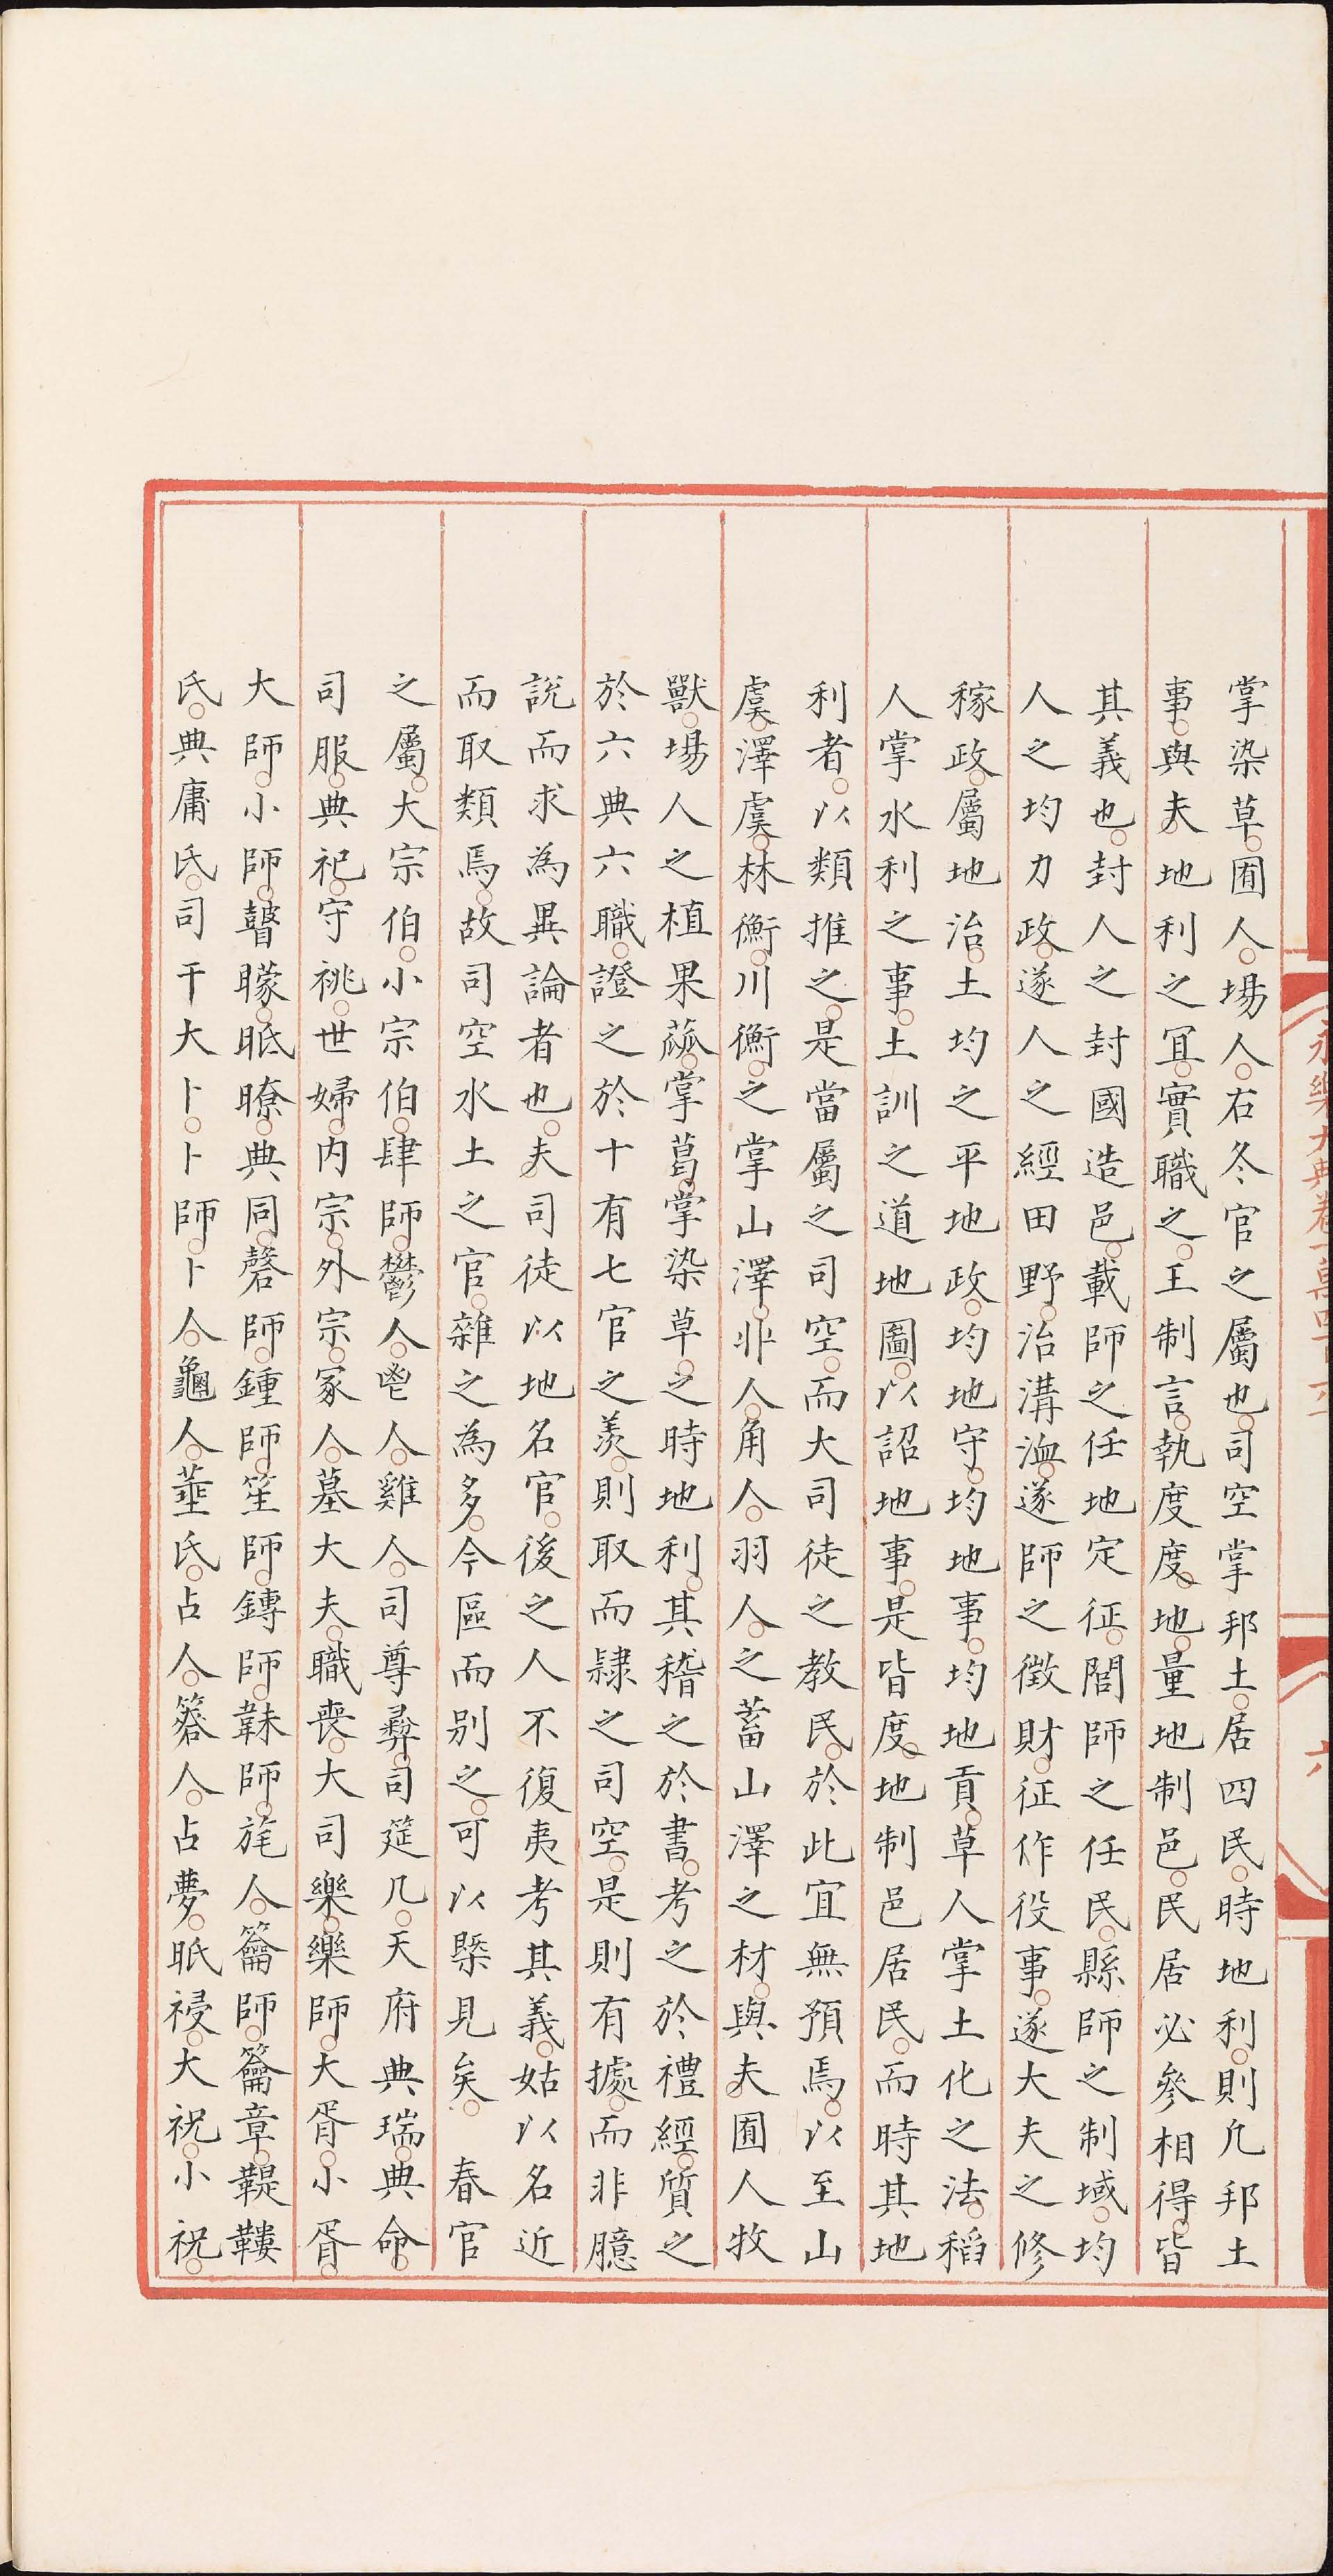 掌染草囿人場人右冬官之屬也司空掌邦土居四民時地利則凡邦土
事與夫地利之冝實職之王制言執度度地量地制邑民居必參相得皆
其義也封人之封國造邑載師之任地定征閭師之任民縣師之制域均
人之均力政遂人之經田野治溝洫遂師之徴財征作役事遂大夫之修
稼政屬地治土均之平地政均地守均地事均地貢草人掌土化之法稻
人掌水利之事土訓之道地圖以詔地事是皆度地制邑居民而時其地
利者以類推之是當屬之司空而大司徒之教民於此宜無預焉以至山
虞澤虞林衡川衡之掌山澤非人角人羽人之蓄山澤之材與夫囿人牧
獸場人之植果蓏掌葛掌染草之時地利其稽之於書考之於禮經質之
於六典六職證之於十有七官之羡則取而隸之司空是則有據而非臆
說而求為異論者也夫司徒以地名官後之人不復夷考其義姑以名近
而取類焉故司空水土之官雜之為多今區而别之可以槩見矣 春官
之屬大宗伯小宗伯肆師鬱人鬯人雞人司尊彞司筵几天府典瑞典命
司服典祀守祧世婦内宗外宗冢人墓大夫職喪大司樂樂師大胥小胥
大師小師瞽矇眡瞭典同磬師鍾師笙師鏄師韎師旄人籥師籥章鞮鞻
氏典庸氏司干大卜卜師卜人龜人菙氏占人簭人占夢眂祲大祝小祝
永樂大典卷一萬四百六十
六